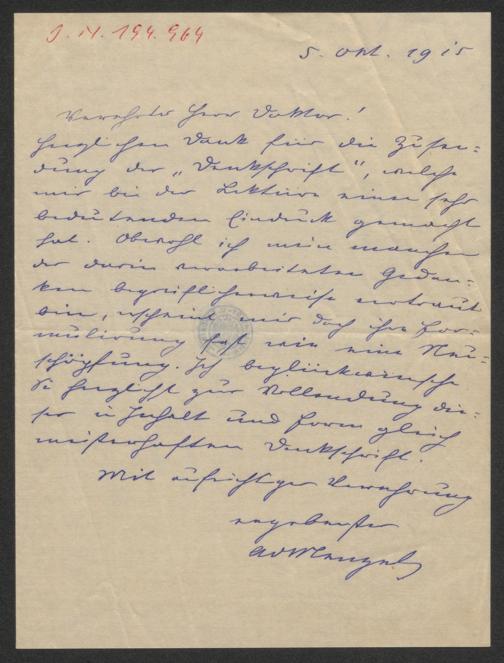 J. N. 194.964
5. Okt. 1915
Verehrter Herr Doktor!
Herzlichen Dank für die Zusen-
dung der „Denkschrift“, welche
mir bei der Lektüre einen sehr
bedeutenden Eindruck gemacht
hat. Obwohl ich mein manchen
der darin verarbeiteten Gedan-
ken begreiflicherweise vertraut
bin, erscheint mir doch ihre For-
mulirung fast wie eine Neu-
schöpfung. Ich beglückwünsche
Sie herzlichst zur Vollendung die-
ser in Inhalt und Form gleich
meisterhaften Denkschrift.
Mit aufrichtiger Verehrung
ergebenster